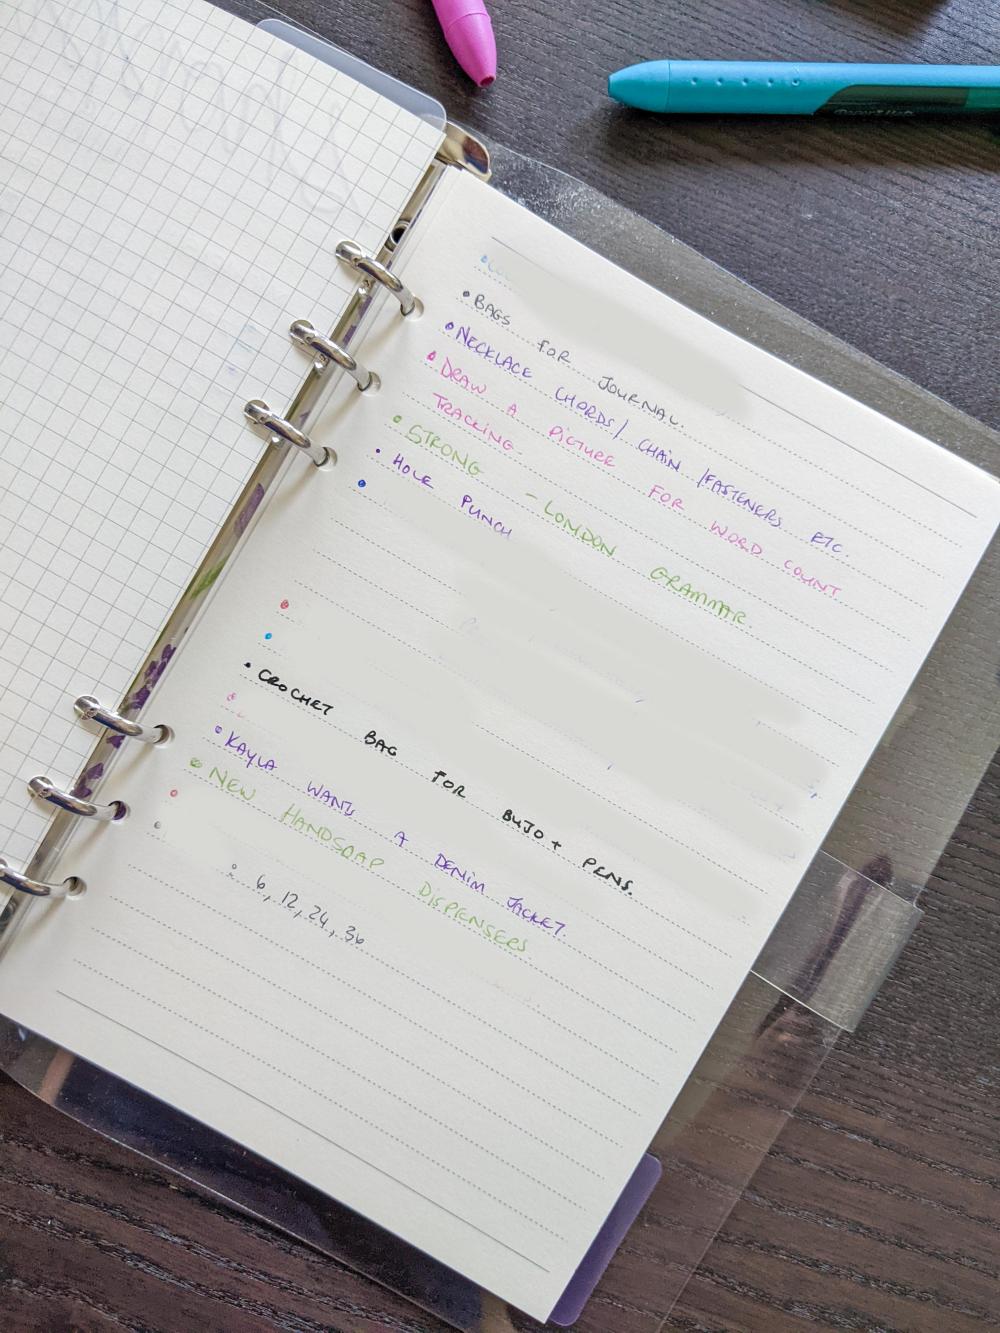 • BAGS FOR JOURNAL.
• NECKLACE CHORDS/ CHAIN /FASTENERS ETC.
• DRAW A PICTURE FOR WORD COUNT
TRACKING
• STRONG - LONDON GRAMMAR
• HOLE PUNCH
• CROCHET BAG FOR BUJO + PENS.
• KAYLA WANTS A DENIM JACKET.
• NEW HANDSOAP DISPENSERS
6, 12, 24, 36